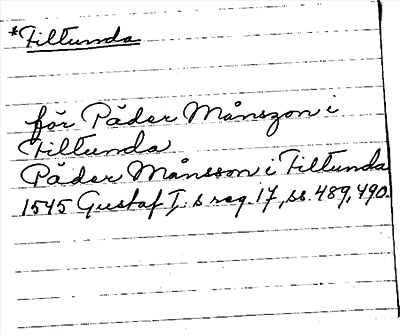 *Tiltunda
för Påder Månszon i
Tiltunda
Påder Månsson i Tiltunda
1545 Gustaf I:s reg. 17, ss. 489, 490.